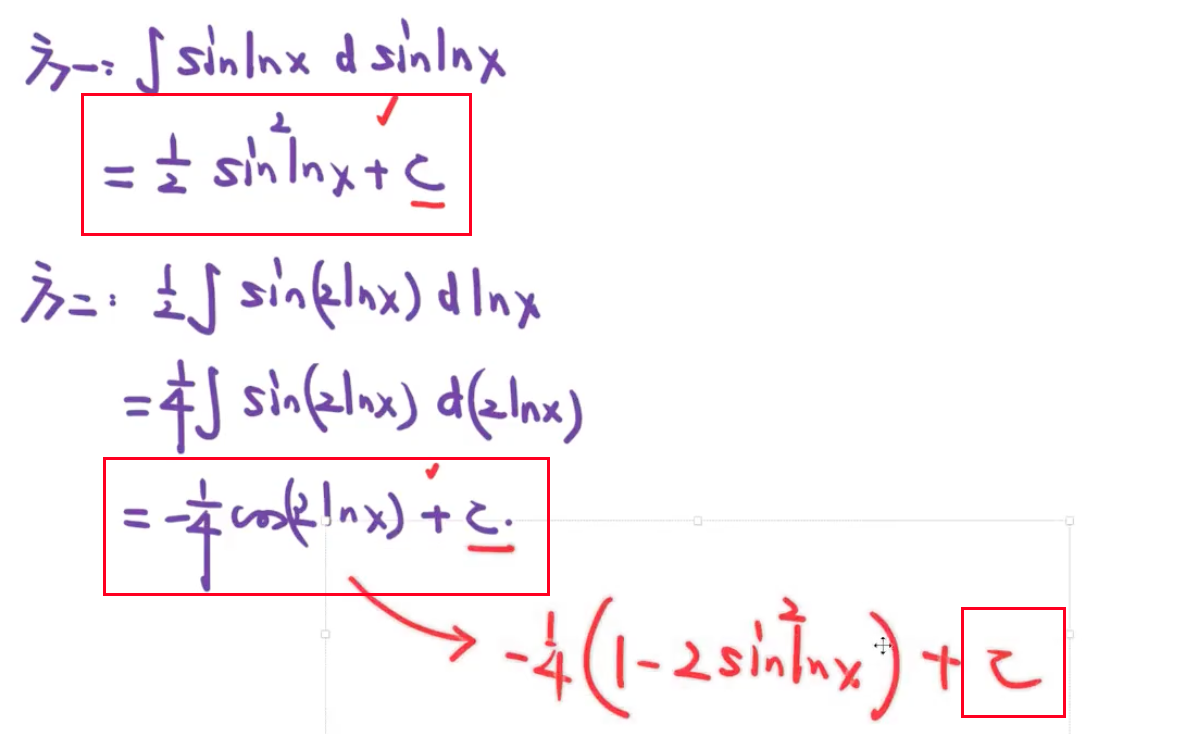 方一: ∫ sin lnx d sin lnx
= 1/2 sin² lnx + C
方二: 1/2 ∫ sin(2lnx) d lnx
= 1/4 ∫ sin(2lnx) d(2lnx)
= -1/4 cos(2lnx) + C.
-1/4 (1 - 2 sin² lnx) + C